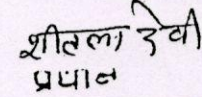 शीतला देवी
प्रधान